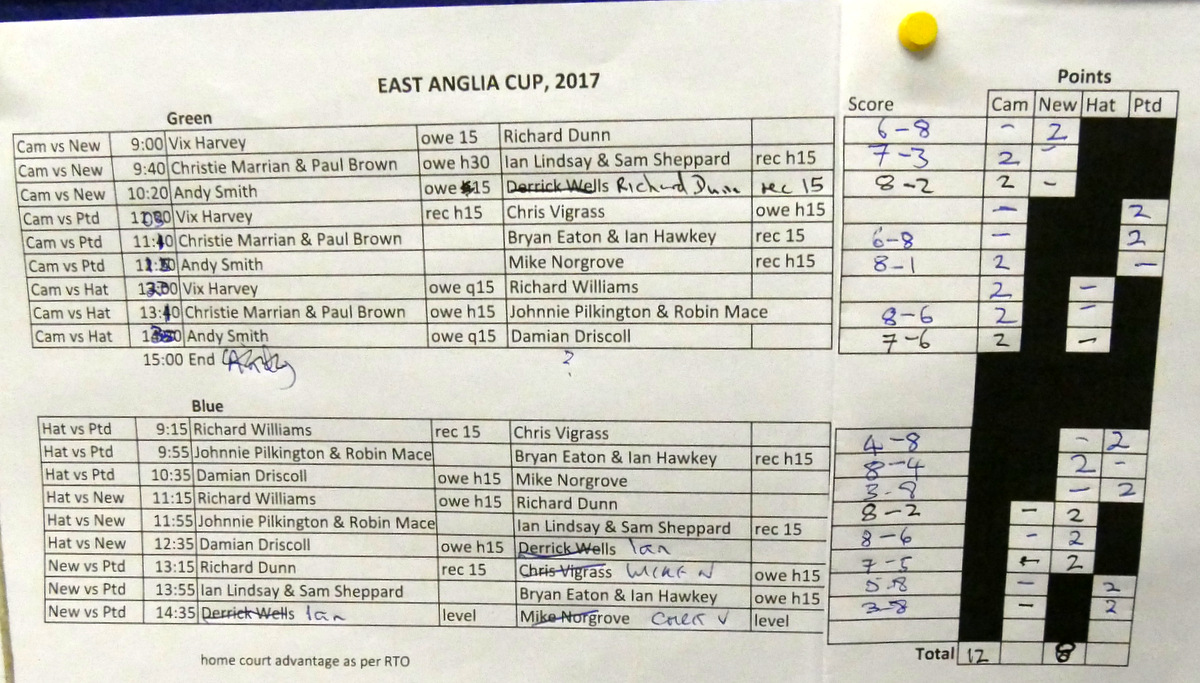 EAST ANGLIA CUP, 2017
Points
Green
Score Cam New Hat Ptd
Cam vs New 9:00 Vix Harvey owe 15 Richard Dunn 6-8 - 2
Cam vs New 9:40 Christie Marrian & Paul Brown owe h30 Ian Lindsay & Sam Sheppard rec h15 7-3 2 -
Cam vs New 10:20 Andy Smith owe 15 Derrick Wells Richard Dunn rec 15 8-2 2 -
Cam vs Ptd Vix Harvey rec h15 Chris Vigrass owe h15 - 2
Cam vs Ptd 11:40 Christie Marrian & Paul Brown Bryan Eaton & Ian Hawkey rec 15 6-8 - 2
Cam vs Ptd Andy Smith Mike Norgrove rec h15 8-1 2 -
Cam vs Hat Vix Harvey owe q15 Richard Williams 2 -
Cam vs Hat 13:40 Christie Marrian & Paul Brown owe h15 Johnnie Pilkington & Robin Mace 8-6 2 -
Cam vs Hat Andy Smith owe q15 Damian Driscoll 7-6 2 -
15:00 End ?
Blue
Hat vs Ptd 9:15 Richard Williams rec 15 Chris Vigrass 4-8 - 2
Hat vs Ptd 9:55 Johnnie Pilkington & Robin Mace Bryan Eaton & Ian Hawkey rec h15 8-4 2 -
Hat vs Ptd 10:35 Damian Driscoll owe h15 Mike Norgrove 3-8 - 2
Hat vs New 11:15 Richard Williams owe h15 Richard Dunn 8-2 - 2
Hat vs New 11:55 Johnnie Pilkington & Robin Mace Ian Lindsay & Sam Sheppard rec 15 8-6 - 2
Hat vs New 12:35 Damian Driscoll owe h15 Derrick Wells Ian 7-5 - 2
New vs Ptd 13:15 Richard Dunn rec 15 Chris Vigrass owe h15 5-8 - 2
New vs Ptd 13:55 Ian Lindsay & Sam Sheppard Bryan Eaton & Ian Hawkey owe h15 3-8 - 2
New vs Ptd 14:35 Derrick Wells Ian level Mike Norgrove level
home court advantage as per RTO
Total 12 8